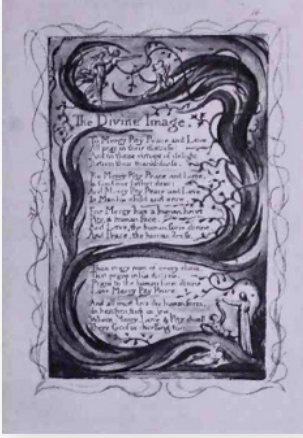 The Divine Image.
To Mercy Pity Peace and Love
All pray in their distress:
And to these virtues of delight
Return their thankfulness.
For Mercy Pity Peace and Love,
Is God our father dear:
And Mercy Pity Peace and Love
Is Man his child and care.
For Mercy has a human heart
Pity, a human face:
And Love, the human form divine,
And Peace, the human dress.
Then every man of every clime,
That prays in his distress,
Prays to the human form divine
Love Mercy Pity Peace.
And all must love the human form,
In heathen, turk or jew.
Where Mercy, Love & Pity dwell
There God is dwelling too